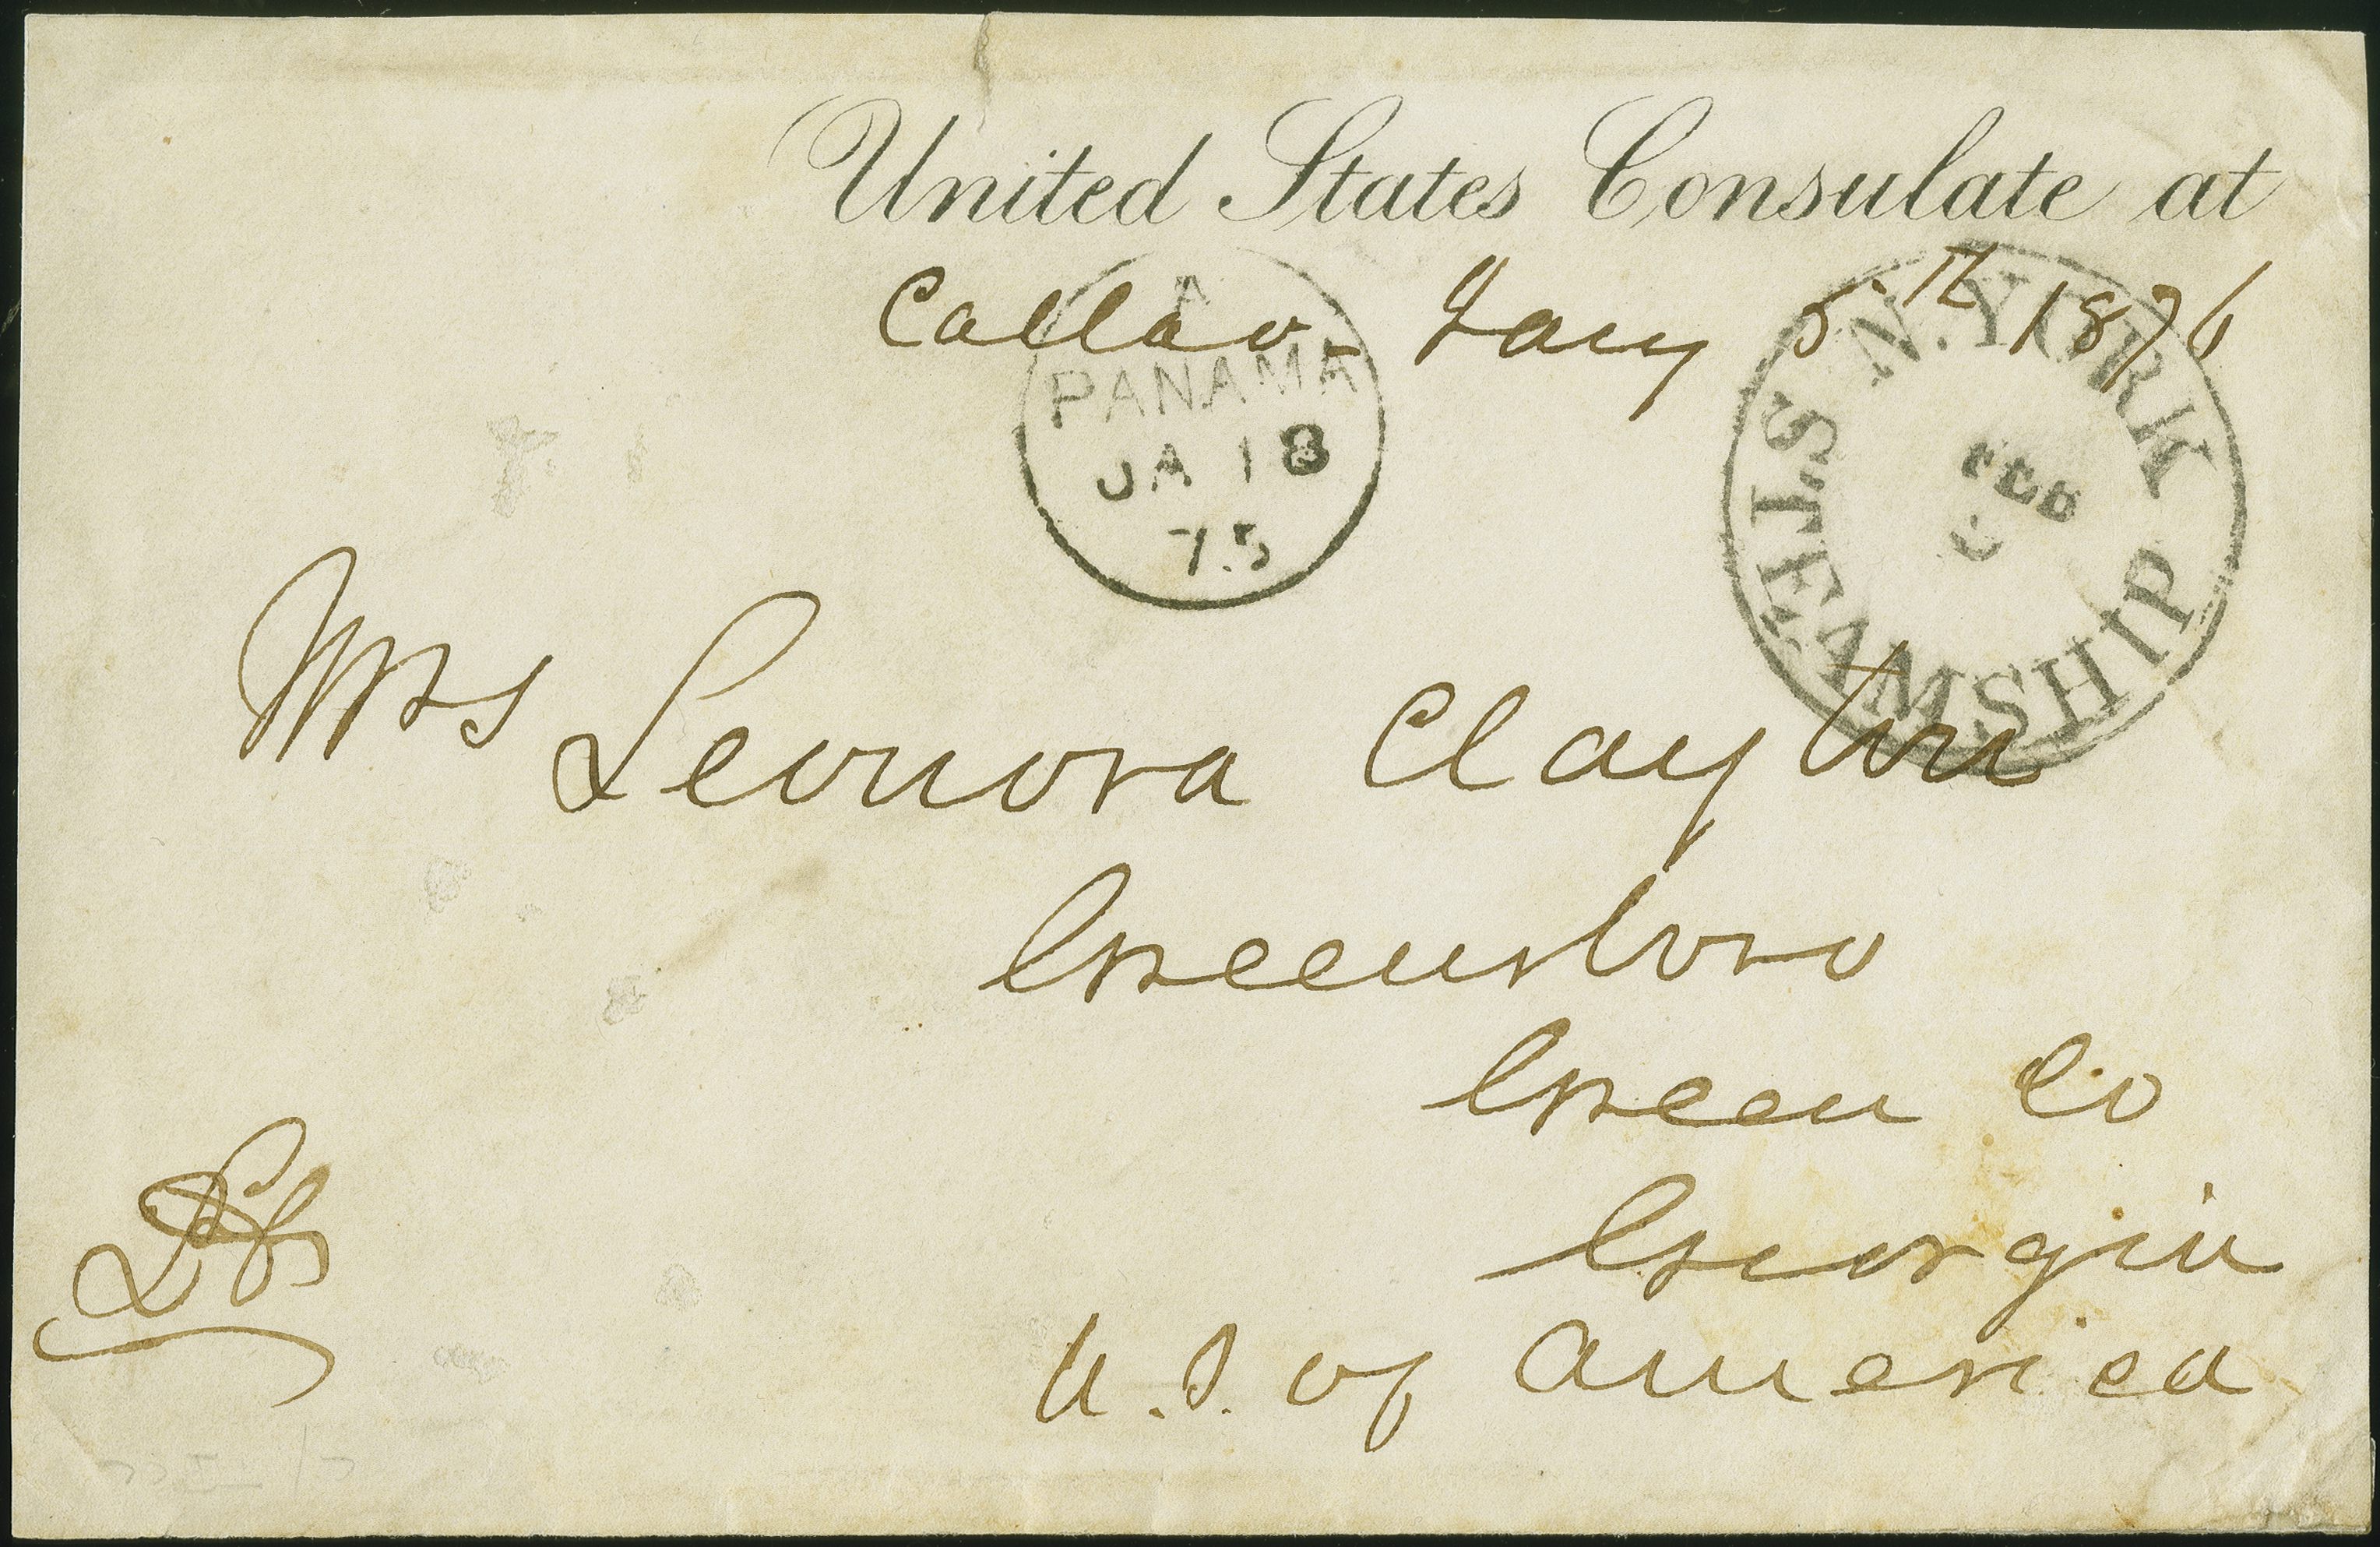 United States Consulate at
Callao - Jany 5th 1876
A
PANAMA
JA 18
75
N. YORK
STEAMSHIP
FEB
Mrs Leonora Clayton
Greensboro
Green Co
Georgia
U.S. of America